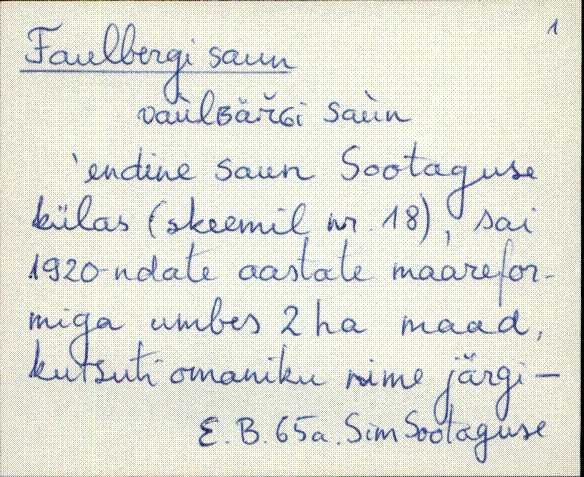 1
Faulbergi saun
vaùlʙäřɢi saùn
'endine saun Sootaguse
külas (skeemil nr. 18), sai
1920-ndate aastate maarefor-
miga umbes 2 ha maad,
kutsuti omaniku nime järgi —
E. B. 65a. Sim Sootaguse